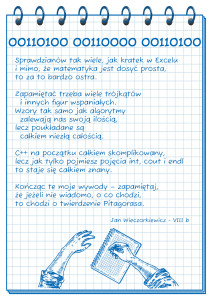 00110100 00110000 00110100
Sprawdzianów tak wiele, jak kratek w Excelu
i mimo, że matematyka jest dosyć prosta,
to za to bardzo ostra.
Zapamiętać trzeba wiele trójkątów
i innych figur wspaniałych.
Wzory tak samo jak algorytmy
zalewają nas swoją ilością,
lecz poukładane są
całkiem niezłą całością.
C++ na początku całkiem skomplikowany,
lecz jak tylko pojmiesz pojęcia int, cout i endl
to staje się całkiem znany.
Kończąc te moje wywody - zapamiętaj,
że jeżeli nie wiadomo, o co chodzi,
to chodzi o twierdzenie Pitagorasa.
Jan Wieczorkiewicz - VIII b